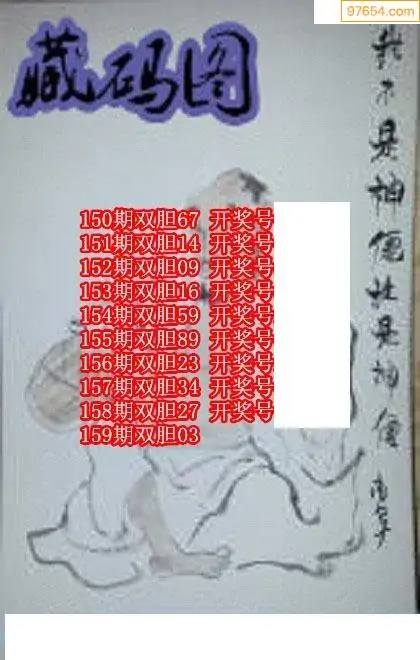 97654.com
藏码图
我不是神僊杜是神僊
150期双胆67 开奖号
151期双胆14 开奖号
152期双胆09 开奖号
153期双胆16 开奖号
154期双胆59 开奖号
155期双胆89 开奖号
156期双胆23 开奖号
157期双胆34 开奖号
158期双胆27 开奖号
159期双胆03